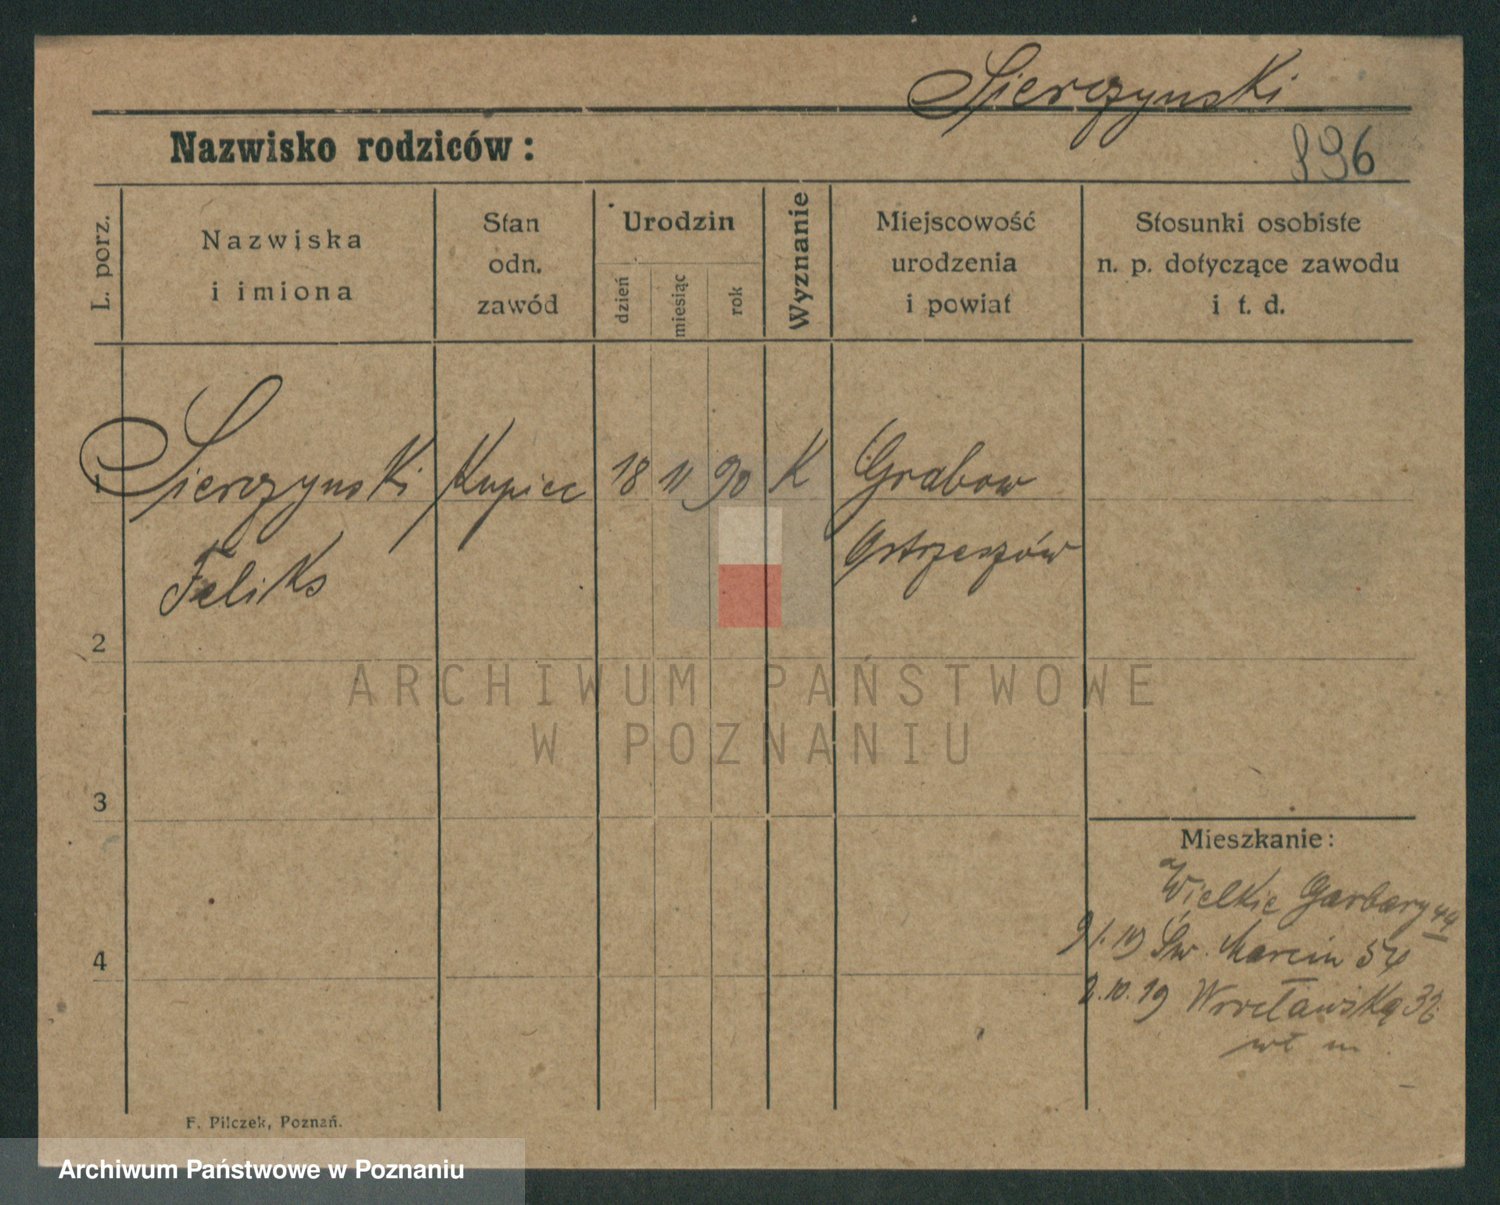 Sierczynski
Nazwisko rodziców:
896
L. porz.
Nazwiska
i imiona
Stan
odn.
zawód
Urodzin
dzień
miesiąc
rok
Wyznanie
Miejscowość
urodzenia
i powiat
Stosunki osobiste
n. p. dotyczące zawodu
i t. d.
1 Sierczynski Kupiec 18 11 90 K Grabow
Ostrzeszów
Feliks
2
ARCHIWUM PAŃSTWOWE
W POZNANIU
3
Mieszkanie:
Wielkie Garbary 44
4
9/.19 Św. Marcin 54
2.10.19 Wrocławska
wł m
F. Pilczek, Poznań.
Archiwum Państwowe w Poznaniu